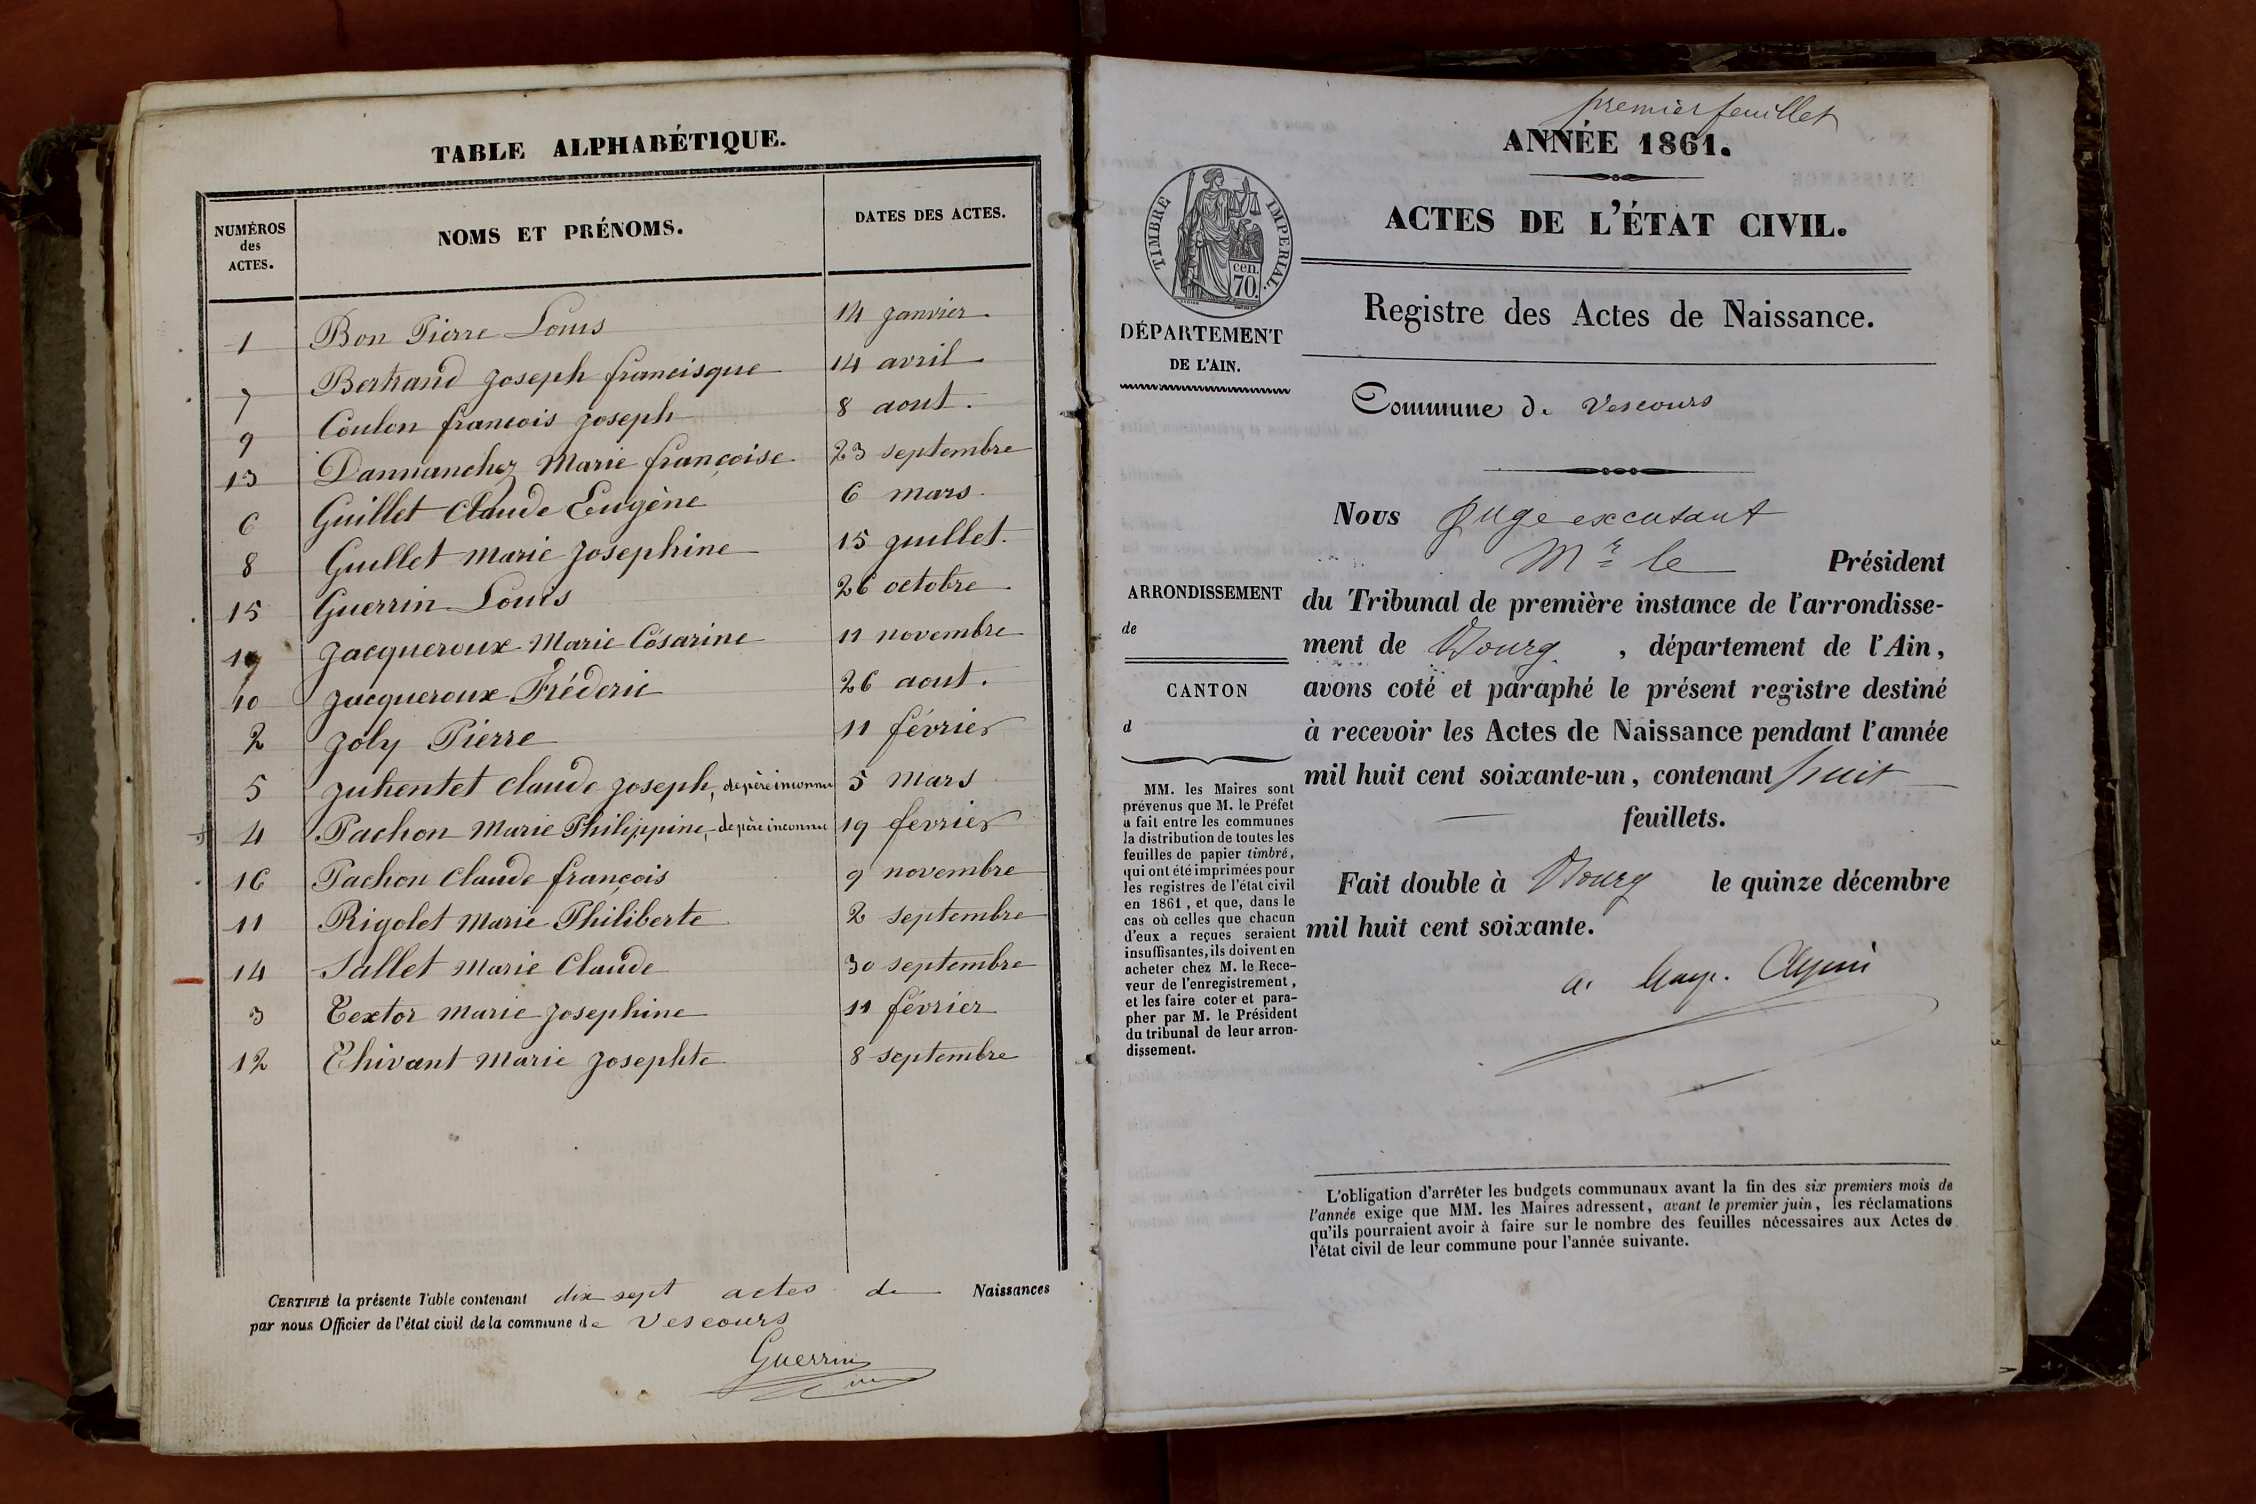 TABLE ALPHABÉTIQUE.
NUMÉROS des ACTES. NOMS ET PRÉNOMS. DATES DES ACTES.
1 Bon Pierre Louis 14 janvier
7 Bertrand joseph francisque 14 avril
9 Coulon francois joseph 8 aout.
13 Dannanchez Marie françoise 23 septembre
6 Guillet Claude Eugène 6 mars
8 Guillet Marie Josephine 15 juillet.
15 Guerrin Louis 26 octobre
17 Jacqueroux Marie Césarine 11 novembre
10 Jacqueroux Fréderic 26 aout.
2 Joly Pierre 11 février
5 Juhentet Claude Joseph, de père inconnu 5 mars
4 Pachon Marie Philippine, de père inconnu 19 fevrier
16 Pachon Claude françois 9 novembre
11 Rigolet Marie Philiberte 2 septembre
14 Sallet Marie Claude 30 septembre
3 Textor Marie Josephine 11 février
12 Thivant Marie Josephte 8 septembre
CERTIFIÉ la présente Table contenant dix sept actes de Naissances
par nous Officier de l'état civil de la commune de Vescours
Guerrin
premier feuillet
ANNÉE 1861.
ACTES DE L'ÉTAT CIVIL.
TIMBRE IMPERIAL.
cen.
70.
Registre des Actes de Naissance.
DÉPARTEMENT
DE L'AIN.
Commune de Vescours
Nous Juge excusant
Mr le Président
du Tribunal de première instance de l'arrondisse-
ment de Bourg, département de l'Ain,
avons coté et paraphé le présent registre destiné
à recevoir les Actes de Naissance pendant l'année
mil huit cent soixante-un, contenant huit
feuillets.
Fait double à Bourg le quinze décembre
mil huit cent soixante.
ARRONDISSEMENT
de
CANTON
d
MM. les Maires sont
prévenus que M. le Préfet
a fait entre les communes
la distribution de toutes les
feuilles de papier timbré,
qui ont été imprimées pour
les registres de l'état civil
en 1861, et que, dans le
cas où celles que chacun
d'eux a reçues seraient
insuffisantes, ils doivent en
acheter chez M. le Rece-
veur de l'enregistrement,
et les faire coter et para-
pher par M. le Président
du tribunal de leur arron-
dissement.
L'obligation d'arrêter les budgets communaux avant la fin des six premiers mois de
l'année exige que MM. les Maires adressent, avant le premier juin, les réclamations
qu'ils pourraient avoir à faire sur le nombre des feuilles nécessaires aux Actes de
l'état civil de leur commune pour l'année suivante.